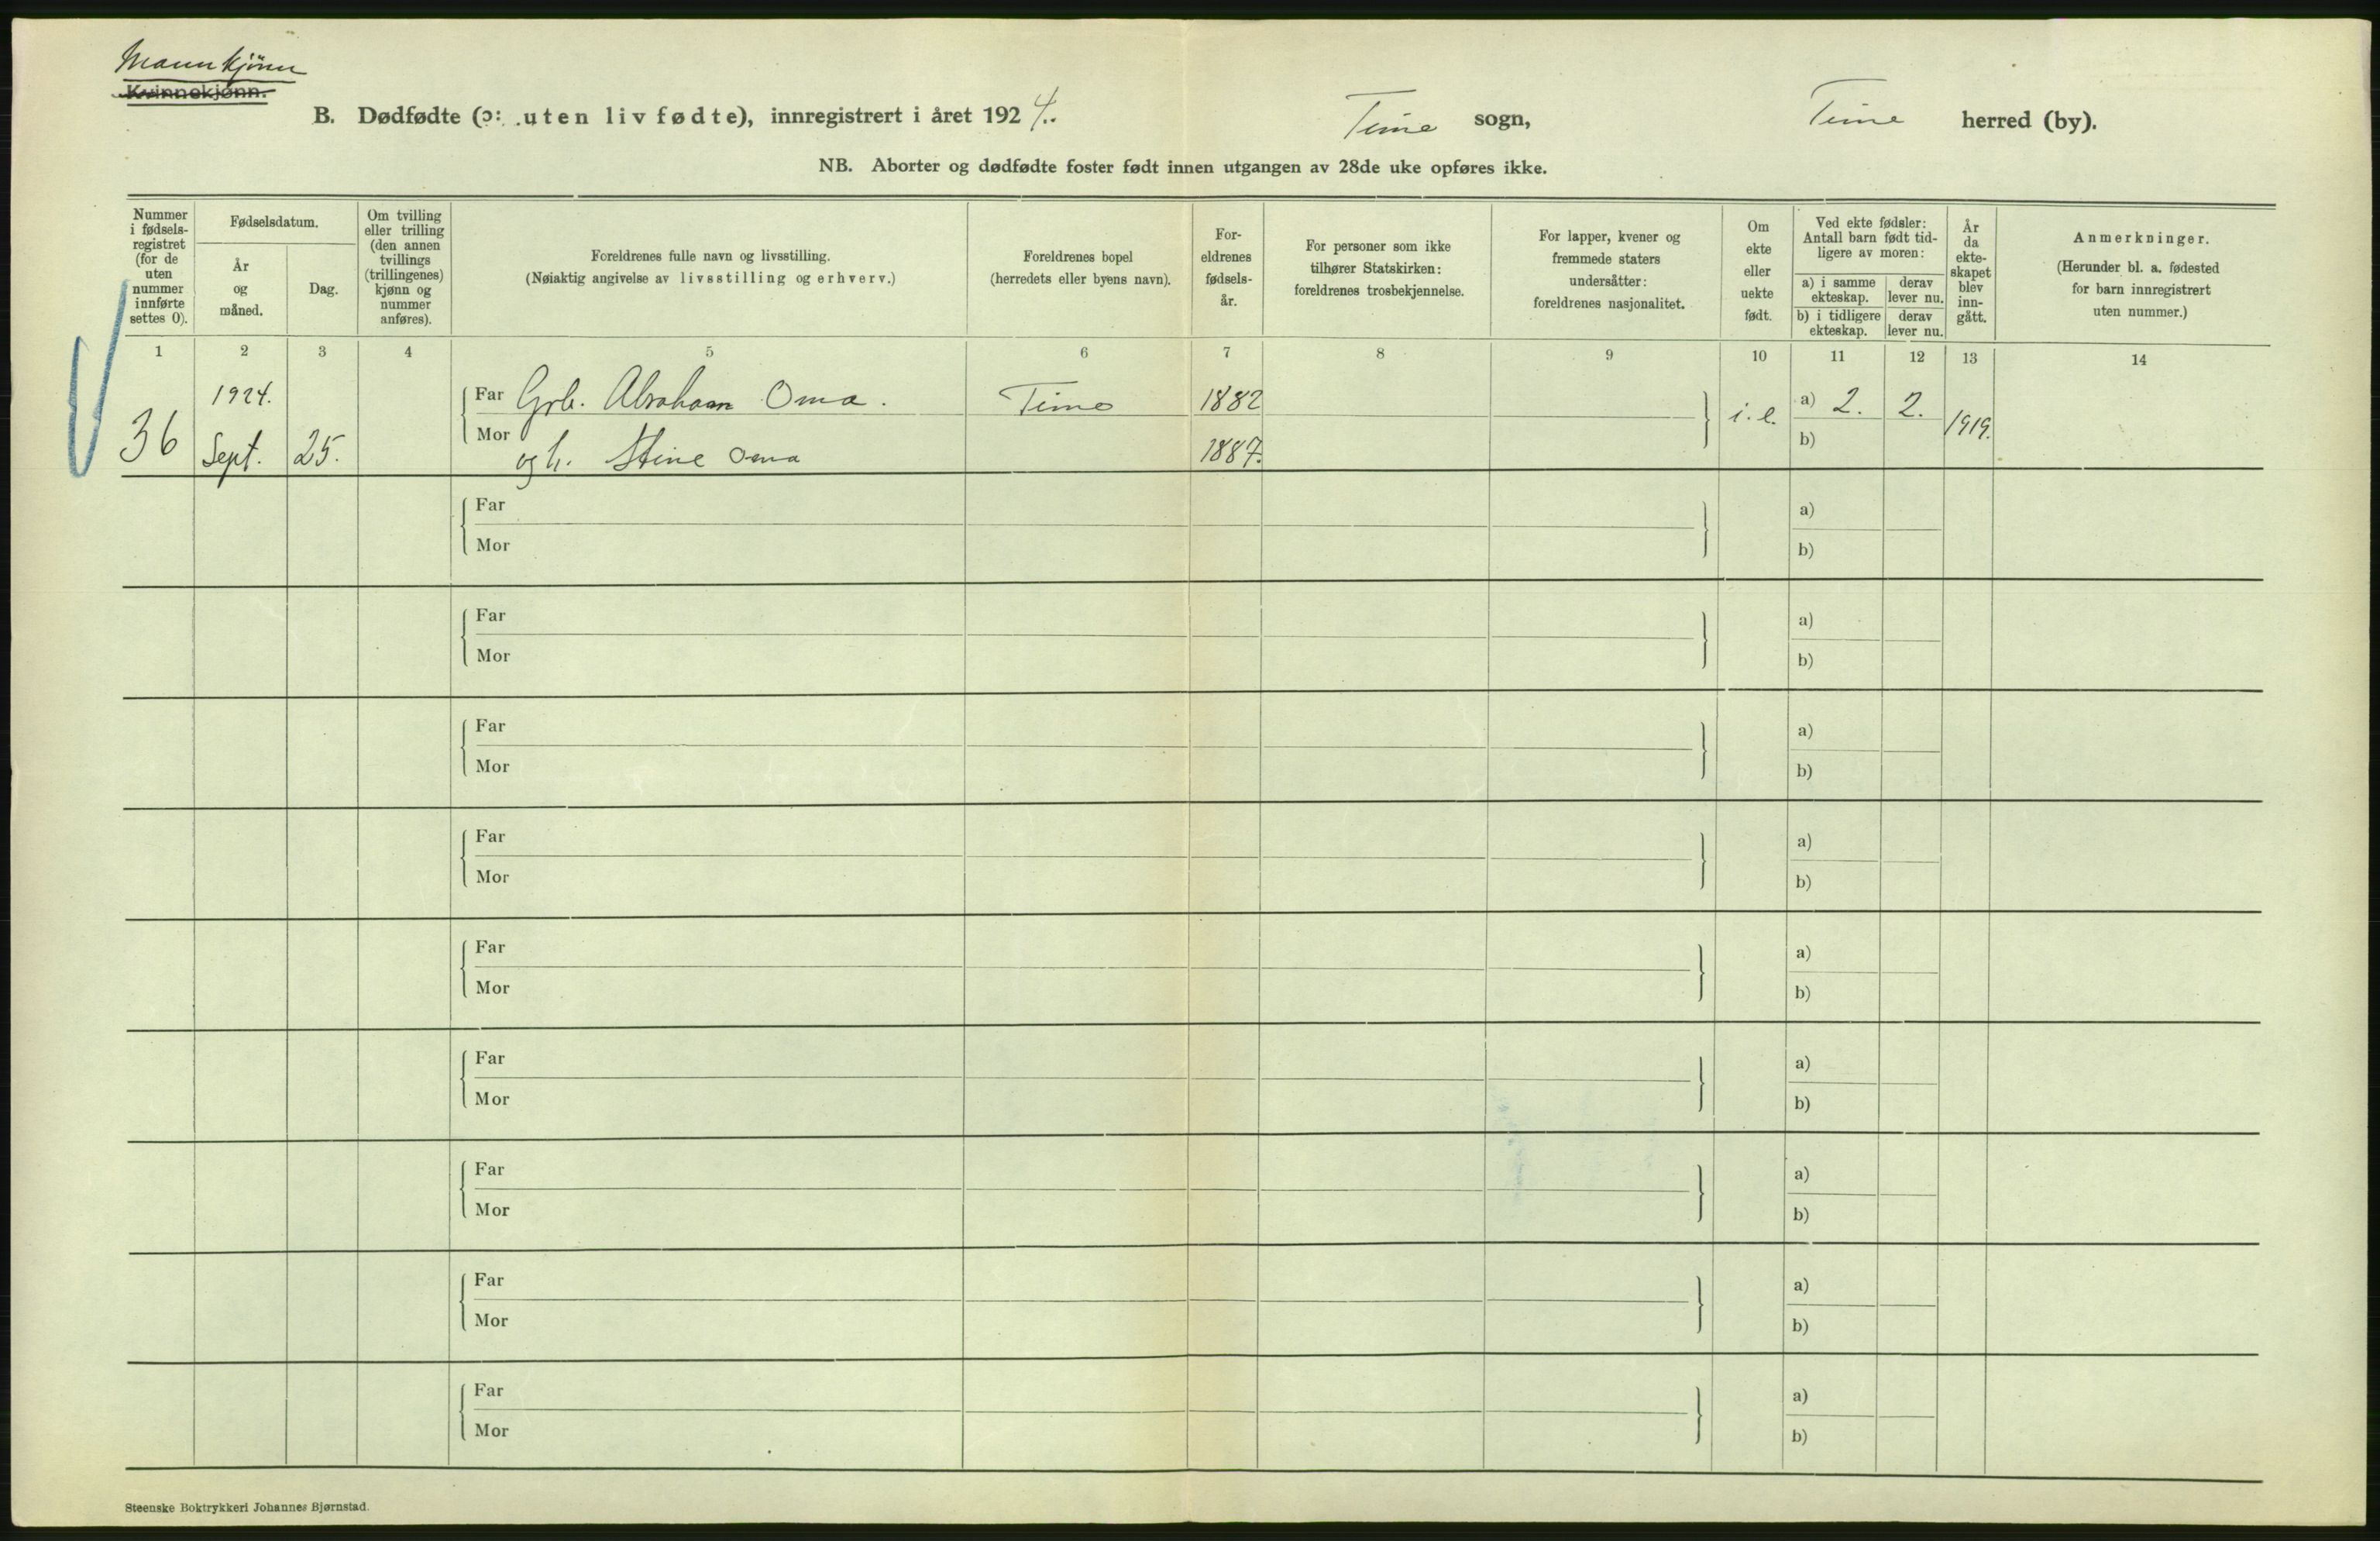 Mannkjønn
Kvinnekjønn.
B. Dødfødte (ɔ: uten liv fødte), innregistrert i året 1924. Time sogn, Time herred (by).
NB. Aborter og dødfødte foster født innen utgangen av 28de uke opføres ikke.
Nummer i fødsels-registret (for de uten nummer innførte settes 0).
Fødselsdatum.
År og måned.
Dag.
Om tvilling eller trilling (den annen tvillings (trillingenes) kjønn og nummer anføres).
Foreldrenes fulle navn og livsstilling.
(Nøiaktig angivelse av livsstilling og erhverv.)
Foreldrenes bopel
(herredets eller byens navn).
For-eldrenes fødsels-år.
For personer som ikke tilhører Statskirken: foreldrenes trosbekjennelse.
For lapper, kvener og fremmede staters undersåtter: foreldrenes nasjonalitet.
Om ekte eller uekte født.
Ved ekte fødsler: Antall barn født tid-ligere av moren:
a) i samme ekteskap.
derav lever nu.
b) i tidligere ekteskap.
derav lever nu.
År da ekte-skapet blev inn-gått.
Anmerkninger.
(Herunder bl. a. fødested for barn innregistrert uten nummer.)
1 2 3 4 5 6 7 8 9 10 11 12 13 14
36 1924. Sept. 25.
Far Grb. Abraham Oma. Time 1882 i.e. a) 2. 2. 1919.
Mor og h. Stine Oma 1887. b)
Far a)
Mor b)
Far a)
Mor b)
Far a)
Mor b)
Far a)
Mor b)
Far a)
Mor b)
Far a)
Mor b)
Far a)
Mor b)
Far a)
Mor b)
Far a)
Mor b)
Steenske Boktrykkeri Johannes Bjørnstad.